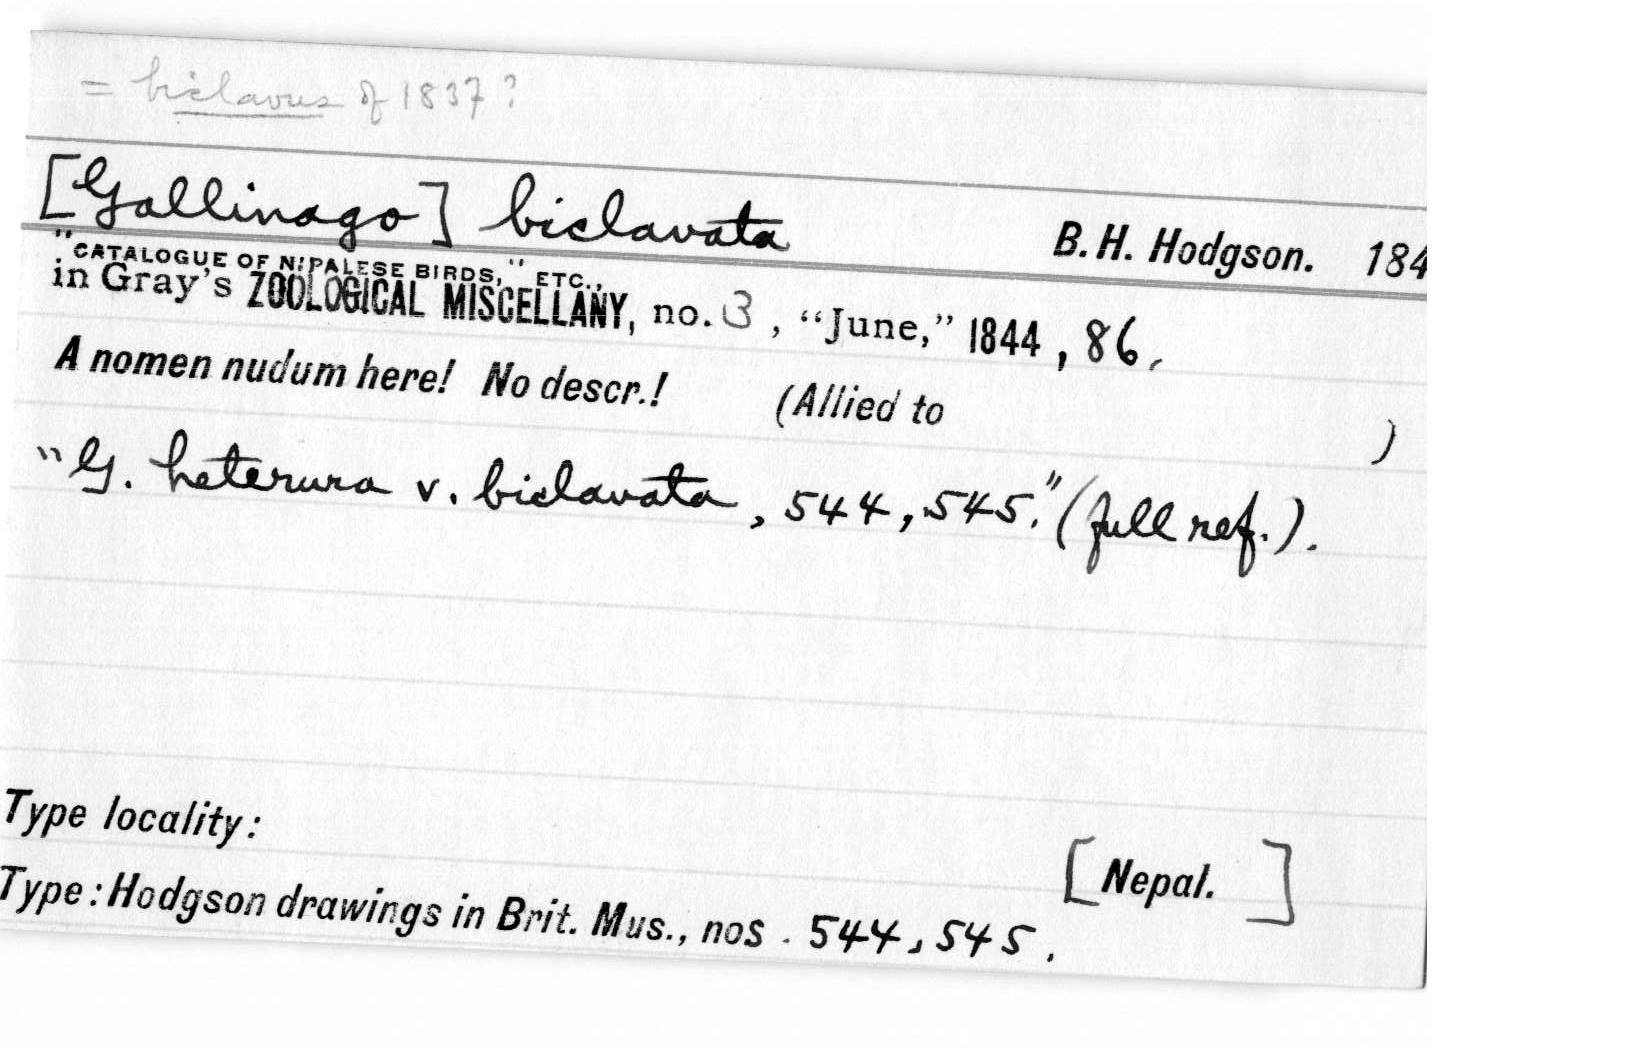 = biclavus of 1837?
[Gallinago] biclavata B. H. Hodgson. 184
"CATALOGUE OF NIPALESE BIRDS," ETC.,
in Gray's ZOOLOGICAL MISCELLANY, no. 3, "June," 1844, 86.
A nomen nudum here! No descr.! (Allied to )
"G. heterura v. biclavata, 544, 545." (full ref.).
Type locality: [Nepal. ]
Type: Hodgson drawings in Brit. Mus., nos. 544, 545.